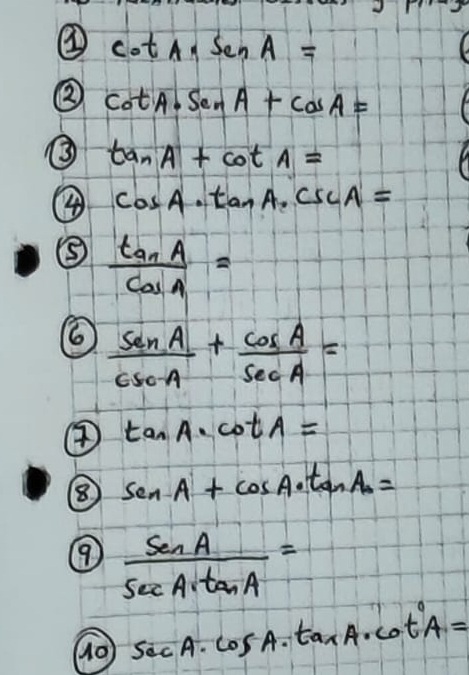 ① cot A · sen A =
② cot A · sen A + cos A =
③ tan A + cot A =
④ cos A · tan A · csc A =
⑤ tan A / cos A =
⑥ sen A / csc A + cos A / sec A =
⑦ tan A · cot A =
⑧ sen A + cos A · tan A =
⑨ sen A / sec A · tan A =
⑩ sec A · cos A · tan A · cot A =